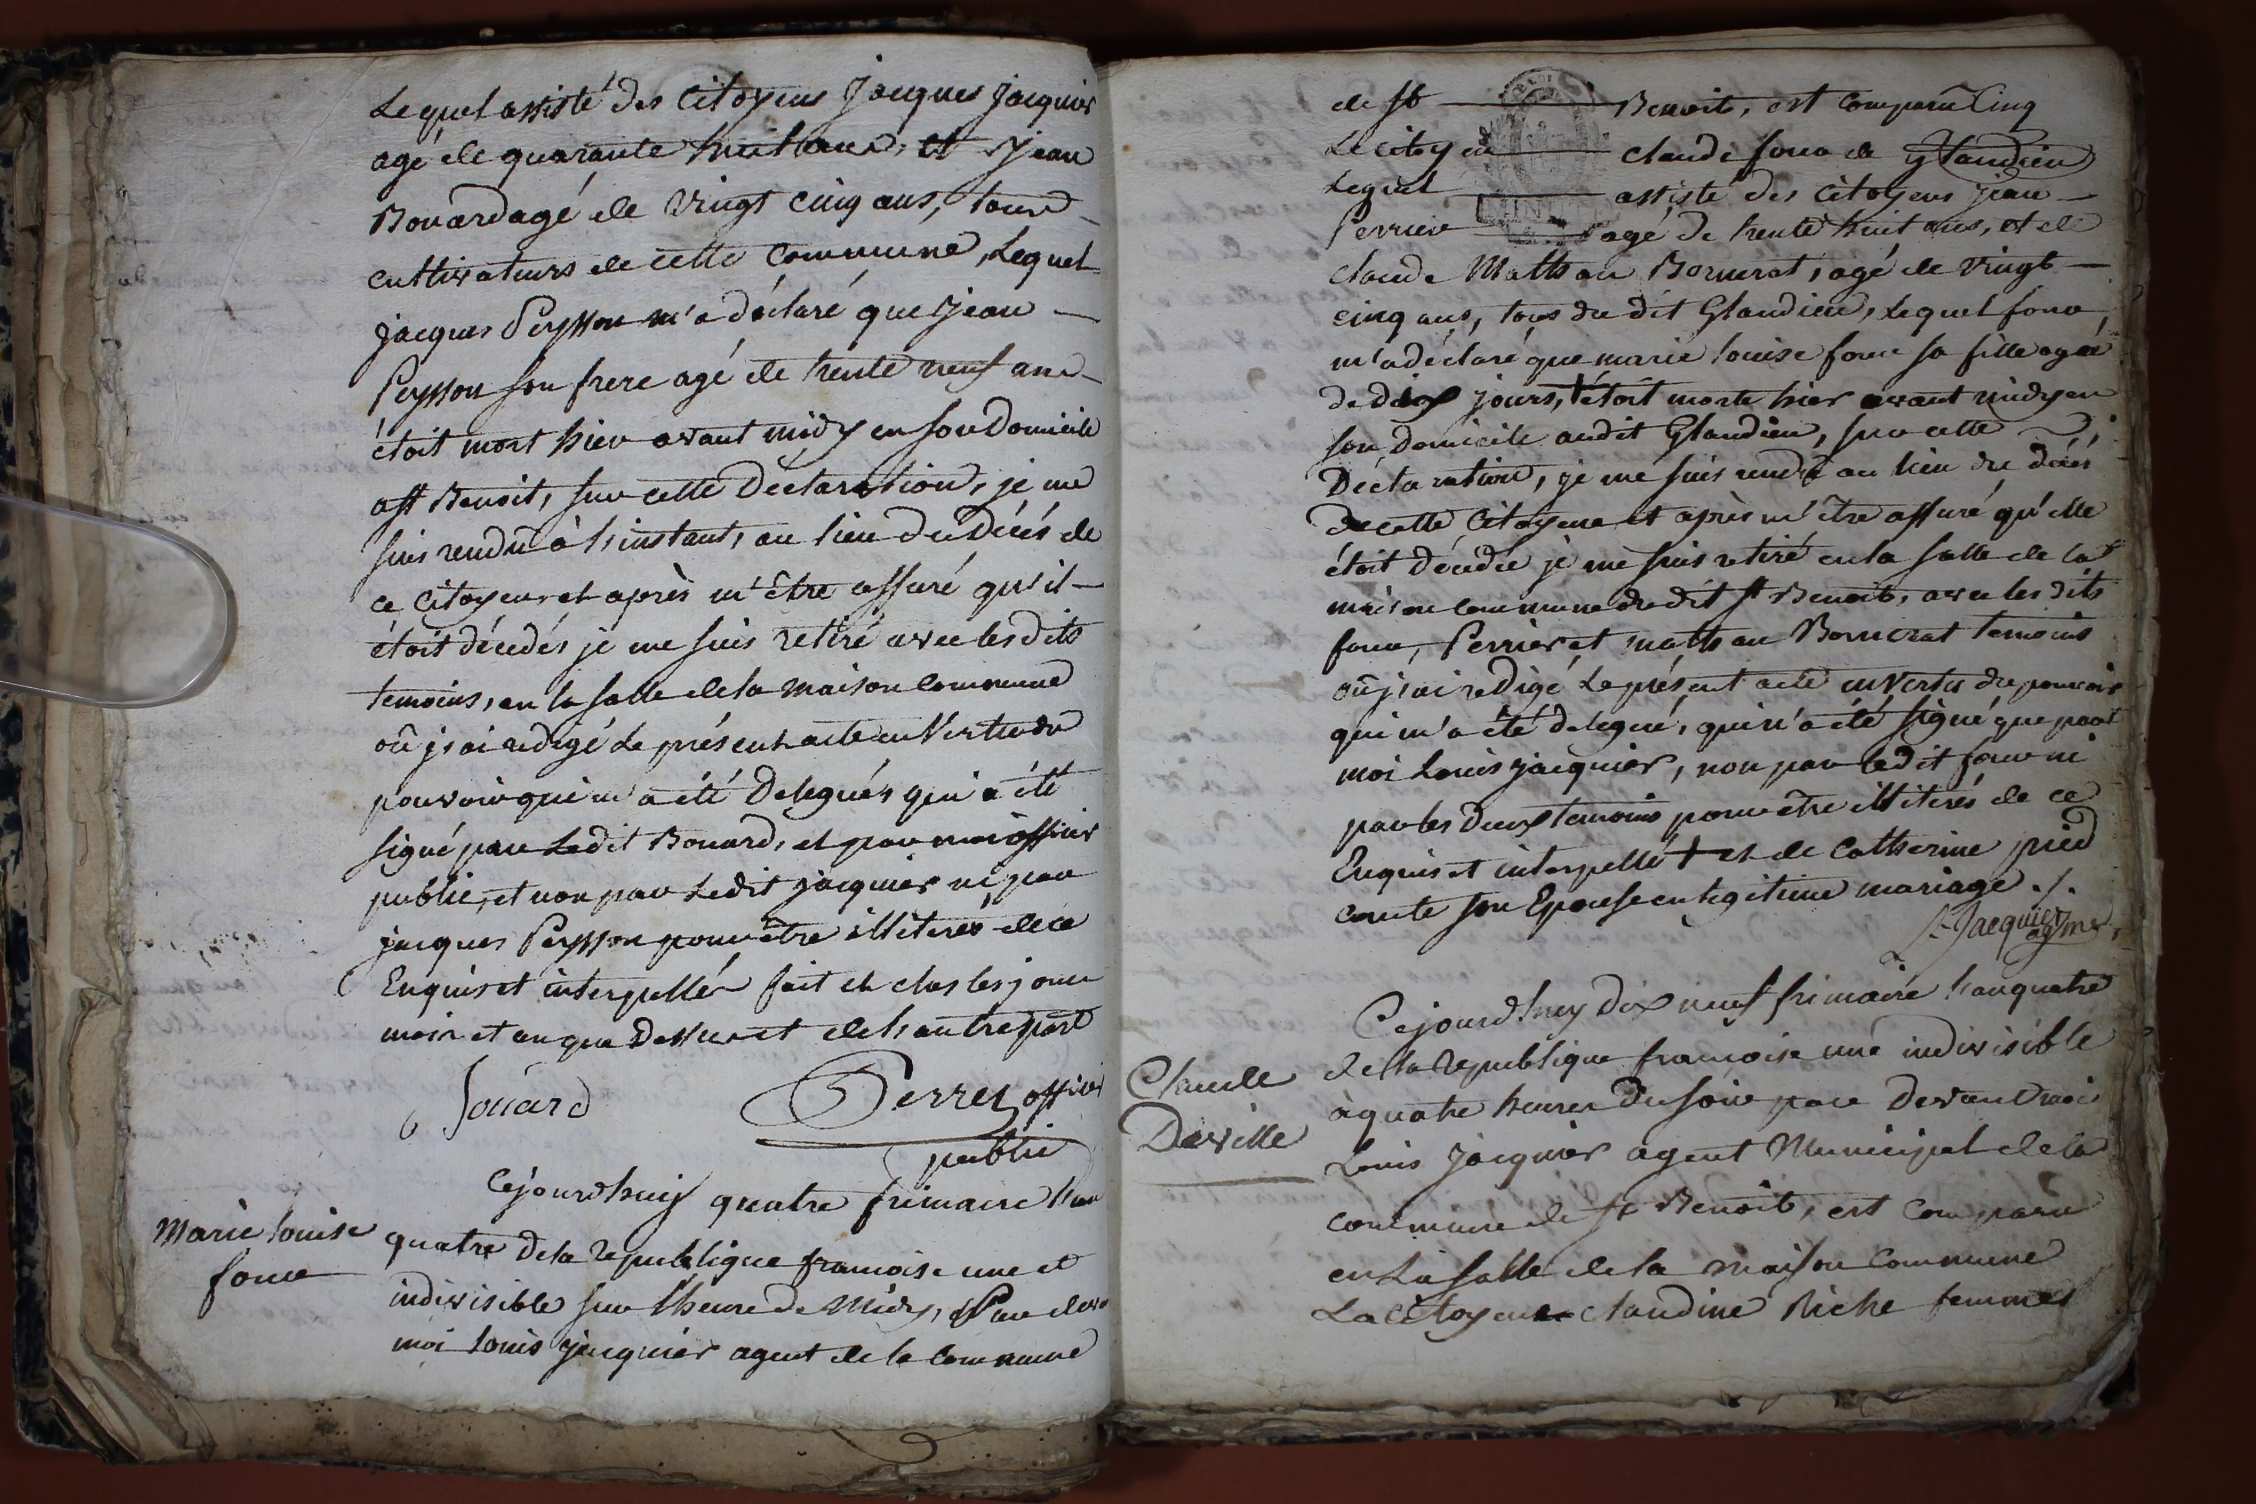 Lequel assisté des citoyens Jacques Jacquier
agé de quarante huit ans, et Jean
Bouard agé de vingt cinq ans, tous
cultivateurs de cette commune, Lequel
jacques Peysson m'a déclaré que Jean
Peysson son frere agé de trente neuf ans
étoit mort hier avant midy en son Domicile
a st Benoit, sur cette Déclaration, je me
suis rendu à l'instant, au lieu du Décés de
ce citoyen et après m'être assuré qu'il
étoit décédés je me suis retiré avec les dits
temoins, en la salle de la maison commune
où j'ai redigé le présent acte en Vertu du
pouvoir qui m'a été Delegués qui a été
signé par Ledit Bouard, et par moi officier
public, et non par Ledit jacquier ni par
jacques Peysson pour être illiterés de ce
Enquis et interpellés fait et clos les jour
mois et an que Dessus et de l'autre part
Bouard
Perret officier
public
Marie Louise
fone
Cejourdhuy quatre frimaire l'an
quatre de la Republique francoise une et
indivisible sur l'heure de Midy, Par devant
moi Louis jacquier agent de la commune
de st Benoit, est comparu
Le citoyen claude fone de glandieu
Lequel assisté des citoyens jean
Perrier agé de trente huit ans, et de
claude Matthau Bornerat, agé de vingt
cinq ans, tous du dit Glandieu, Lequel fone
m'a déclaré que marie Louise fone sa fille agée
de dix jours, † étoit morte hier avant midy en
son Domicile audit Glandieu, sur cette
Déclaration, je me suis rendu au lieu du décés
de cette citoyene et après m'être assuré qu'elle
étoit décédée je me suis retiré en la salle de la
maison commune du dit st Benoit, avec les dits
fone, Perrier et matthau Bornerat temoins
où j'ai redigé le présent acte en Vertu du pouvoir
qui m'a été delegué, qui n'a été signé que par
moi Louis jacquier, non par ledit fone ni
par les deux temoins pour être illiterés de ce
Enquis et interpellé † et de Catherine pied
conte son Epouse en legitime mariage ./.
L. Jacquier
agme
Claude
Deville
Cejourd'huy Dix neuf frimaire l'an quatre
de la republique francoise une indivisible
à quatre heures du soir par Devant moi
Louis jacquier agent Municipal de la
commune de st Benoit, est comparu
en La salle de la maison commune
La citoyene claudine Riche femme